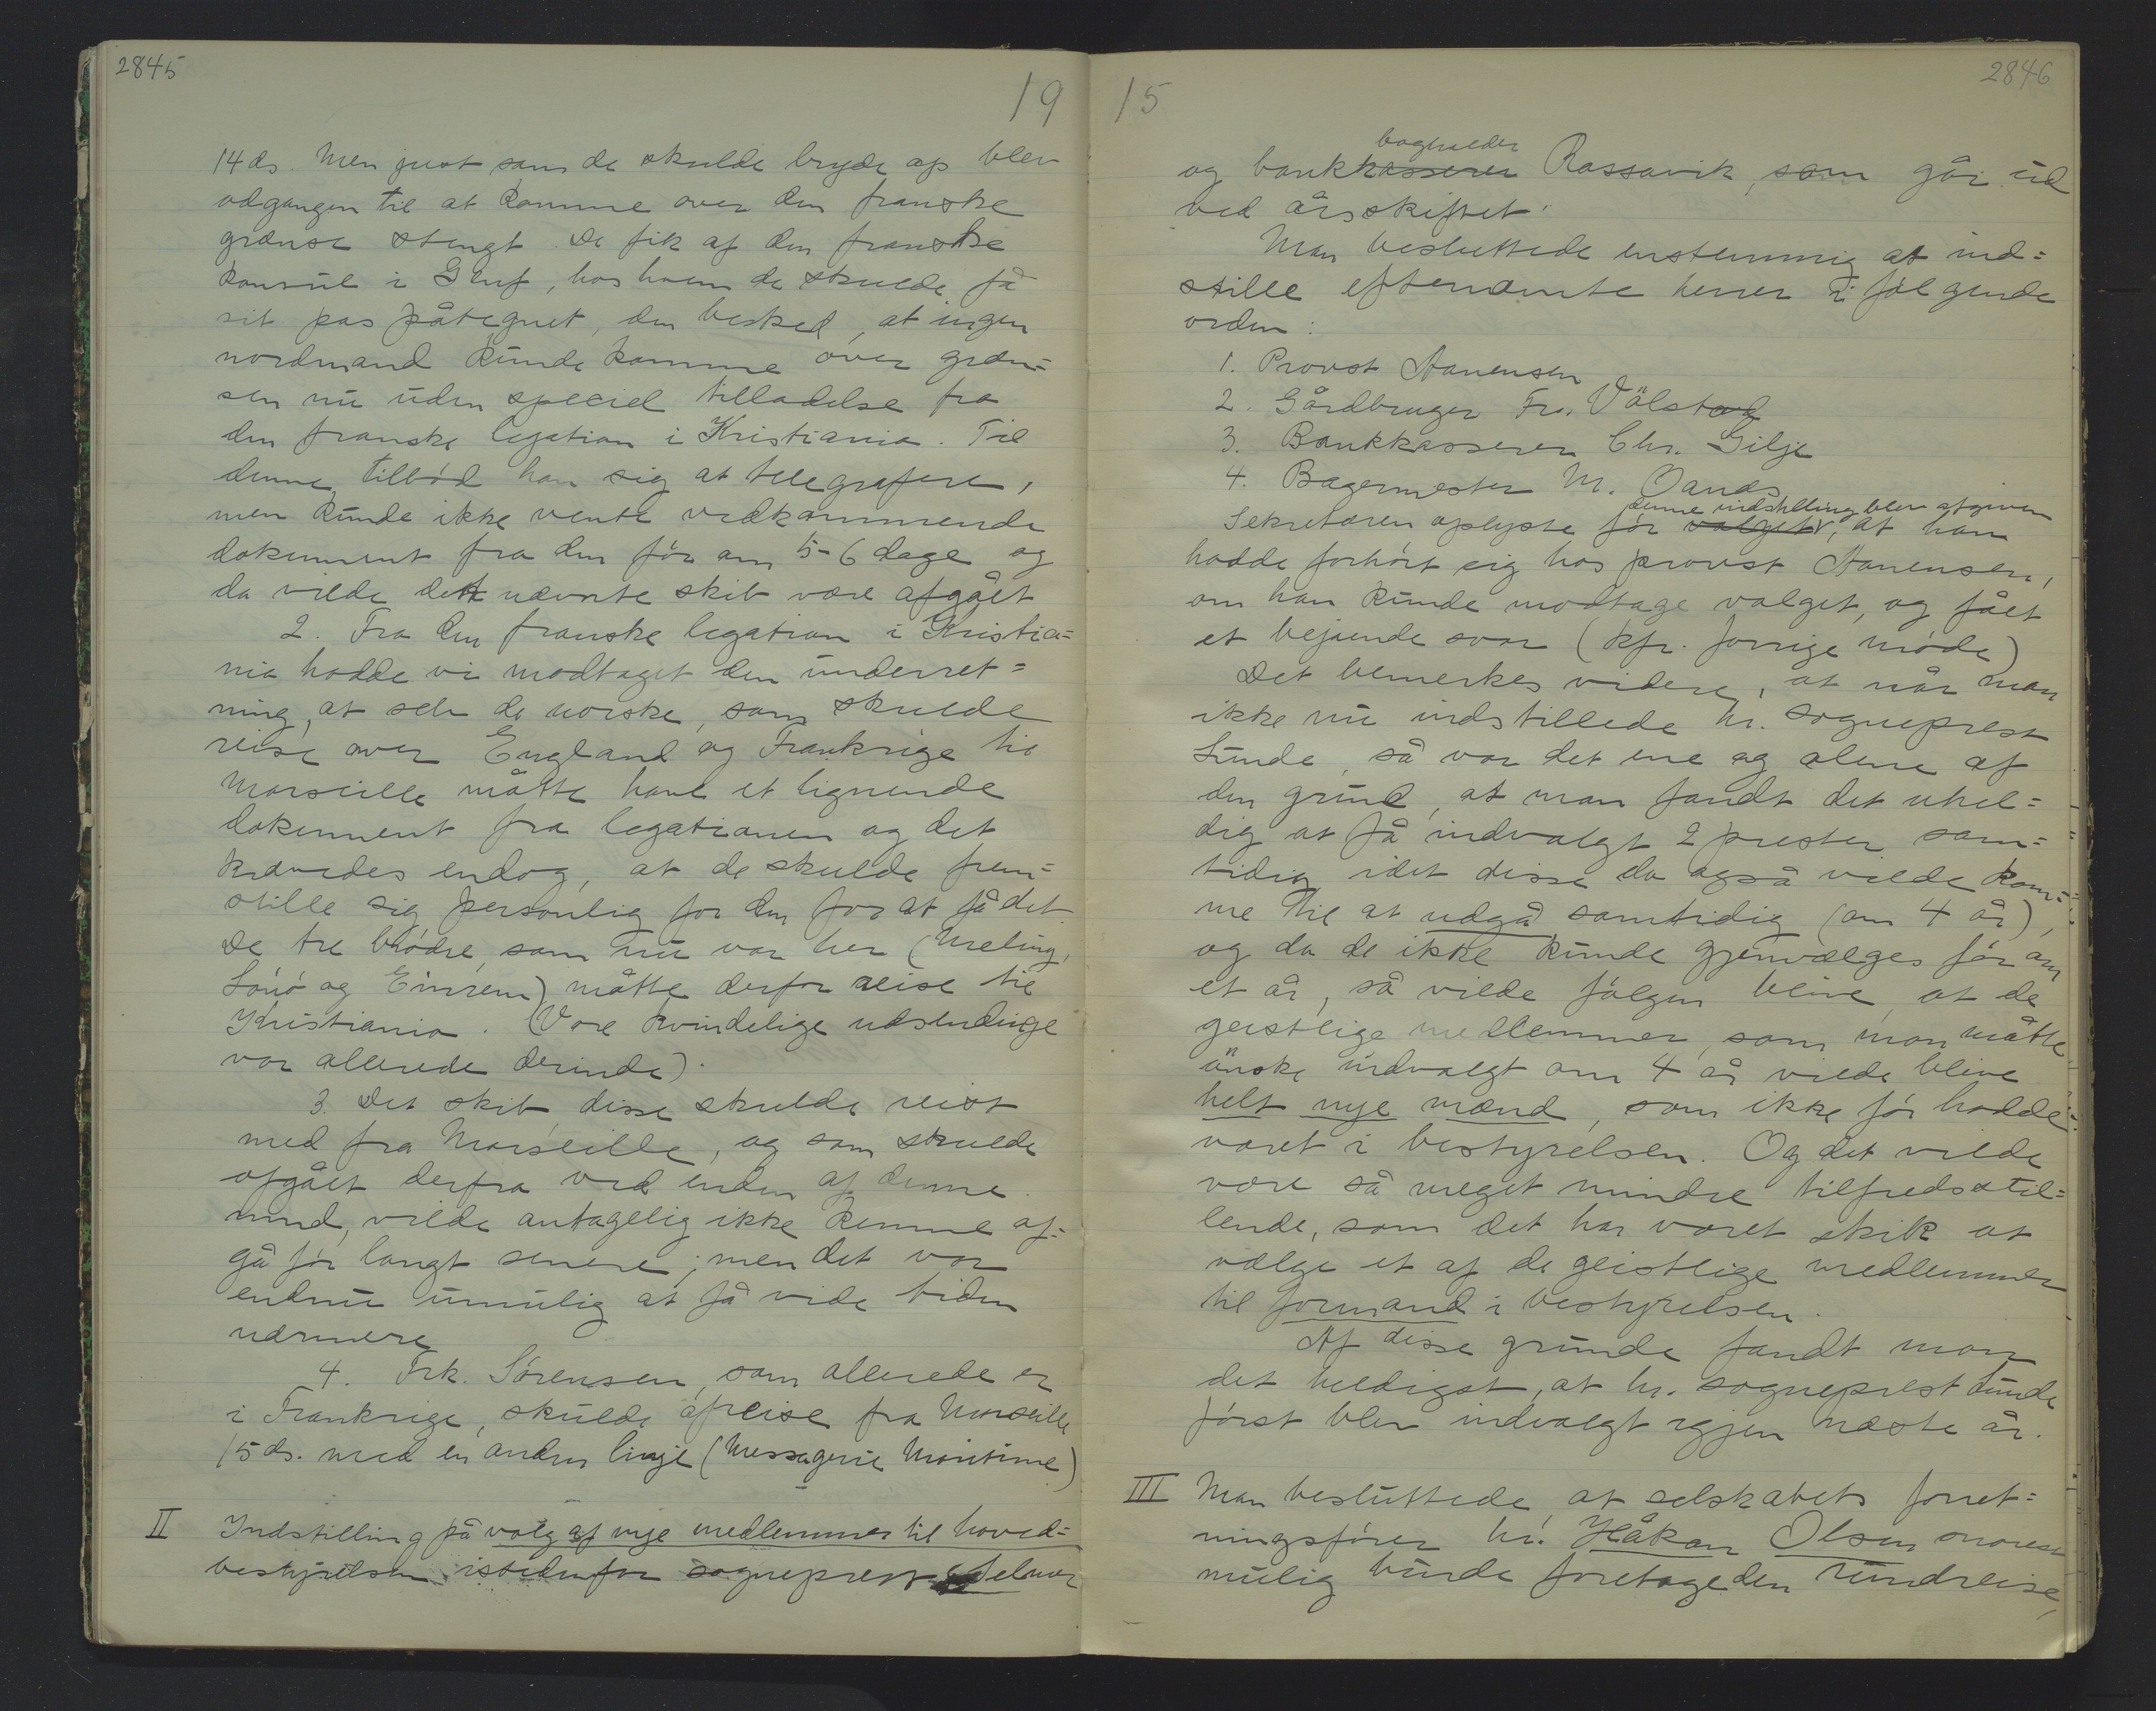 2845
19
14 ds. Men just som de skulde bryde op blev
adgangen til at komme over den franske
grænse stengt. De fik af den franske
konsul i Genf, hos hvem de skulde få
sit pas påtegnet, den besked, at ingen
nordmand kunde komme over græn=
sen nu uden speciel tilladelse fra
den franske legation i Kristiania. Til
denne tilbød han sig at telegrafere,
men kunde ikke vente vedkommende
dokument fra den før om 5-6 dage og
da vilde det nævnte skib være afgået
2. Fra den franske legation i Kristia=
nia hadde vi modtaget den underret=
ning, at selv de norske, som skulde
reise over England og Frankrige til
Marseille måtte have et lignende
dokument fra legationen og det
krævedes endog, at de skulde frem=
stille sig personlig for den for at få det.
De tre brødre, som nu var her (Meling,
Lønø og Einrem) måtte derfor reise til
Kristiania. (Vore kvindelige udsendinge
var allerede derinde).
3. Det skib disse skulde reist
med fra Marseille, og som skulde
afgået derfra ved enden af denne
mnd, vilde antagelig ikke komme af=
gå før langt senere; men det var
endnu umulig at få vide tiden
nærmere
4. Frk. Sørensen, som allerede er
i Frankrige, skulde afreise fra Marseille
15 ds. med en anden linje (Messagerie Maritime)
II Indstilling på valg af nye medlemmer til hoved=
bestyrelsen istedenfor sogneprest Selmer
15
2846
bogholder
og bankkasserer Rossavik, som går ud
ved årsskiftet.
Man besluttede enstemmig at ind=
stille efternævnte herrer i følgende
orden:
1. Provst Aanensen
2. Gårdbruger Fr. Vålstad
3. Bankkasserer Chr. Gilje
4. Bagermester M. Oands
denne indstilling blev afgiven
Sekretæren oplyste før valget, at han
hadde forhørt sig hos provst Aanensen,
om han kunde modtage valget, og fået
et bejaende svar (kfr. forrige møde)
Det bemerkes videre, at når man
ikke nu indstillede hr. sogneprest
Lunde, så var det ene og alene af
den grund, at man fandt det uhel=
dig at få indvalgt 2 prester sam=
tidig idet disse da også vilde kom=
me til at udgå samtidig (om 4 år),
og da de ikke kunde gjenvælges før om
et år, så vilde følgen blive at de
geistlige medlemmer, som man måtte
ønske indvalgt om 4 år vilde blive
helt nye mænd, som ikke før hadde
været i bestyrelsen. Og det vilde
være så meget mindre tilfredsstil=
lende, som det har været skik at
vælge et af de geistlige medlemmer
til formand i bestyrelsen.
Af disse grunde fandt man
det heldigst, at hr. sogneprest Lunde
først blev indvalgt igjen næste år.
III Man besluttede at selskabets forret=
ningsfører hr. Håkon Olsen snarest
mulig burde foretage den rundreise,